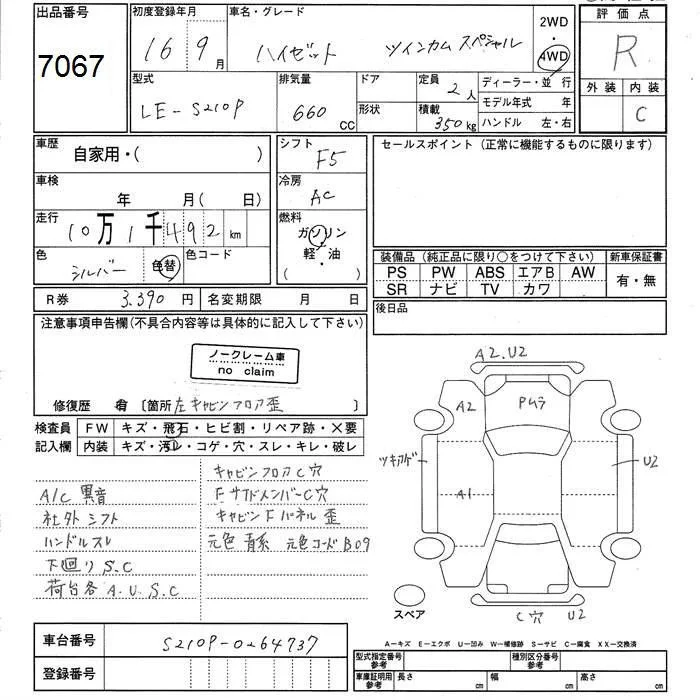 出品番号
7067
初度登録年月
16年9月
車名・グレード
ハイゼット ツインカム スペシャル
2WD
・
4WD
評価点
R
型式
LE-S210P
排気量
660
CC
ドア
形状
定員
2人
積載
350kg
ディーラー・並 行
モデル年式 年
ハンドル 左・右
外装 内装
C
車歴
自家用・( )
シフト
F5
セールスポイント(正常に機能するものに限ります)
車検
年 月(日)
冷房
AC
走行
10万1千492km
燃料
ガソリン
軽・油
( )
色
シルバー
色替
色コード
装備品(純正品に限り○をつけて下さい) 新車保証書
PS PW ABS エアB AW
SR ナビ TV カワ
有・無
R券 3.390円
名変期限 月 日
後日品
注意事項申告欄(不具合内容等は具体的に記入して下さい)
ノークレーム車
no claim
修復歴 有 〔箇所 左キャビンフロア歪 〕
検査員
記入欄
FW キズ・飛石・ヒビ割・リペア跡・X要
内装 キズ・汚レ・コゲ・穴・スレ・キレ・破レ
A/C 異音
社外シフト
ハンドルスレ
下回りS.C
荷台各A.U.S.C
キャビンフロアC穴
FサイドメンバーC穴
キャビンFパネル歪
元色 青系 元色コード B09
A2.U2
A2
Pムラ
U2
A1
C穴 U2
スペア
A−キズ E−エクボ U−凹み W−補修跡 S−サビ C−腐食 XX−交換済
車台番号
S210P-0264737
登録番号
型式指定番号
参考
種別区分番号
参考
車庫証明用
参考
長さ cm
幅 cm
高さ cm